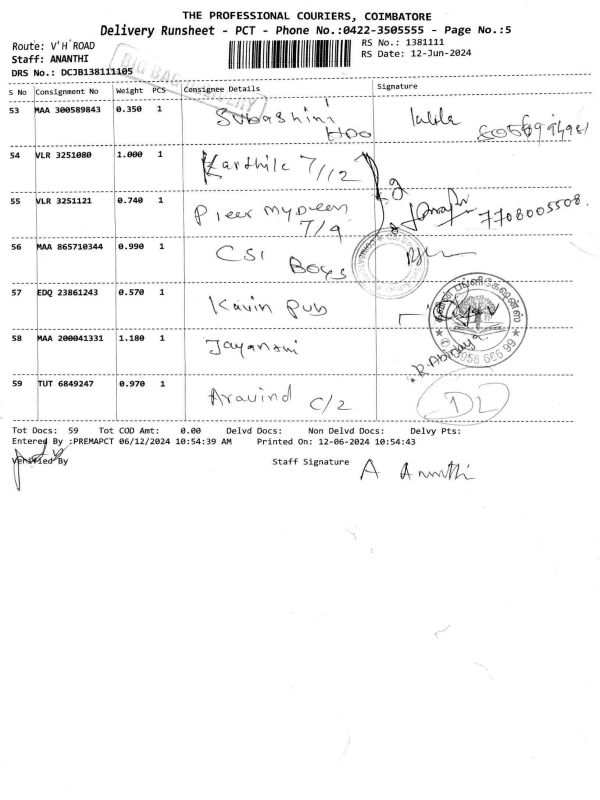 THE PROFESSIONAL COURIERS, COIMBATORE
Delivery Runsheet - PCT - Phone No.:0422-3505555 - Page No.:5
Route: V'H'ROAD
RS No.: 1381111
Staff: ANANTHI
RS Date: 12-Jun-2024
DRS No.: DCJB138111105
BIG BAG DELIVERY
S No Consignment No Weight PCS Consignee Details Signature
53 MAA 300589843 0.350 1 Subashini
HDO
54 VLR 3251080 1.000 1 Karthik 7/12
55 VLR 3251121 0.740 1 Pieer mydeen 7708005508
7/9
56 MAA 865710344 0.990 1 CSI
Boys
57 EDQ 23861243 0.570 1 Kavin pub
58 MAA 200041331 1.180 1 Jayanani
59 TUT 6849247 0.970 1 Aravind C/2 DL
Tot Docs: 59 Tot COD Amt: 0.00 Delvd Docs: Non Delvd Docs: Delvy Pts:
Entered By :PREMAPCT 06/12/2024 10:54:39 AM Printed On: 12-06-2024 10:54:43
Verified By Staff Signature A Ananthi